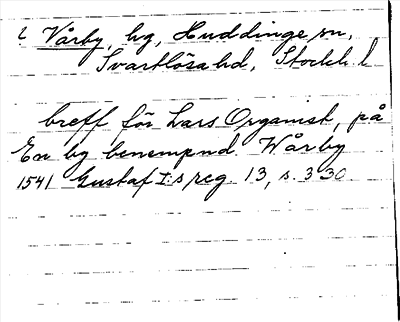 Vårby, by, Huddinge sn,
Svartlösa hd, Stockh. l
breff för Lars Organist, på
En by benempnd Wårby
1541 Gustaf I:s reg. 13, s. 330.